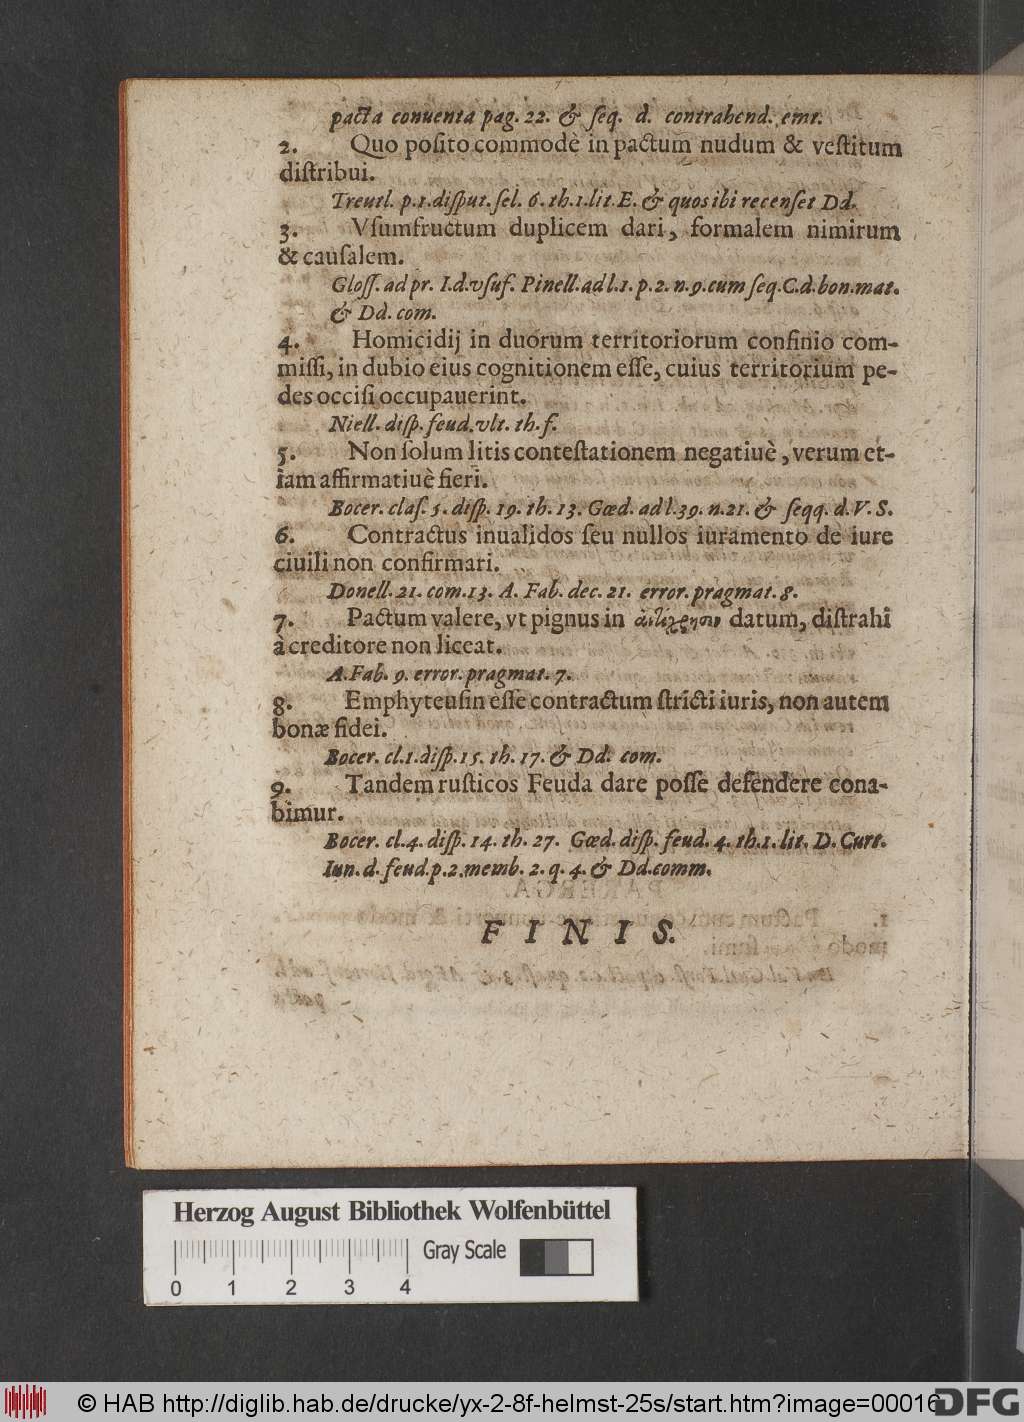 pacta conuenta pag. 22. & ſeq. d. contrahend. emt.
2. Quo poſito commodè in pactum nudum & veſtitum
diſtribui.
Treutl. p.1. diſput. ſel. 6. th.1. lit. E. & quos ibi recenſet Dd.
3. Vſumfructum duplicem dari, formalem nimirum
& cauſalem.
Gloſſ. ad pr. I. d. vſuf. Pinell. ad l.1. p.2. n.9. cum ſeq. C. d. bon. mat.
& Dd. com.
4. Homicidij in duorum territoriorum confinio com-
miſſi, in dubio eius cognitionem eſſe, cuius territorium pe-
des occiſi occupauerint.
Niell. diſp. feud. vlt. th. f.
5. Non ſolum litis conteſtationem negatiuè, verum et-
iam affirmatiuè fieri.
Bocer. claſ. 5. diſp. 19. th. 13. Gœd. ad l. 39. n. 21. & ſeqq. d. V. S.
6. Contractus inualidos ſeu nullos iuramento de iure
ciuili non confirmari.
Donell. 21. com. 13. A. Fab. dec. 21. error. pragmat. 8.
7. Pactum valere, vt pignus in datum, diſtrahi
à creditore non liceat.
A. Fab. 9. error. pragmat. 7.
8. Emphyteuſin eſſe contractum ſtricti iuris, non autem
bonæ fidei.
Bocer. cl.1. diſp. 15. th. 17. & Dd. com.
9. Tandem ruſticos Feuda dare poſſe defendere cona-
bimur.
Bocer. cl.4. diſp. 14. th. 27. Gœd. diſp. feud. 4. th.1. lit. D. Curt.
Iun. d. feud. p.2. memb. 2. q. 4. & Dd. comm.
FINIS.
Herzog August Bibliothek Wolfenbüttel
Gray Scale
0 1 2 3 4
© HAB http://diglib.hab.de/drucke/yx-2-8f-helmst-25s/start.htm?image=00016
DFG